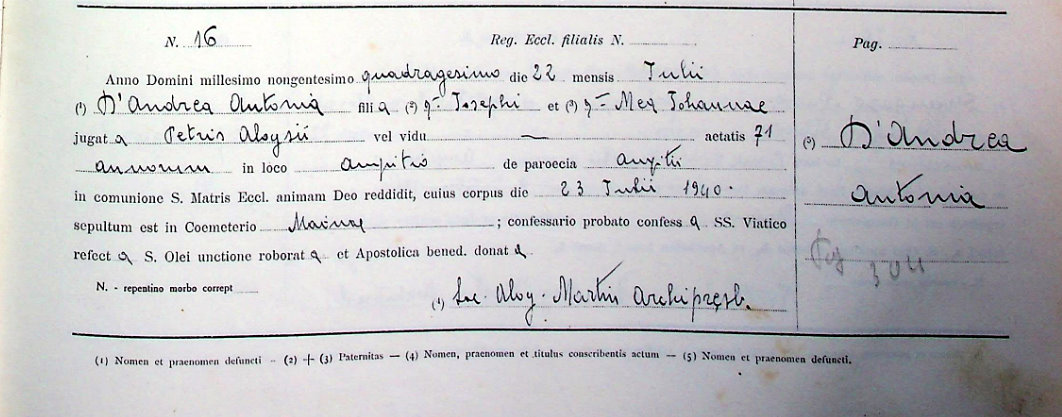 N. 16 Reg. Eccl. filialis N. Pag.
Anno Domini millesimo nongentesimo quadragesimo die 22 mensis Iulii
(¹) D'Andrea Antonia fili a (²) q.m Iosephi et (³) q.m Mea Iohannae
jugat a Petris Aloysii vel vidu — aetatis 71
(⁵) D'Andrea
annorum in loco Ampitio de paroecia
Antonia
in comunione S. Matris Eccl. animam Deo reddidit, cuius corpus die 23 Iulii 1940.
sepultum est in Coemeterio ; confessario probato confess a SS. Viatico
refect a S. Olei unctione roborat a et Apostolica bened. donat a
304
N. - repentino morbo corrept
(⁴) Sac. Aloy. Martin Archipresb.
(1) Nomen et praenomen defuncti - (2) + (3) Paternitas — (4) Nomen, praenomen et titulus conscribentis actum — (5) Nomen et praenomen defuncti.